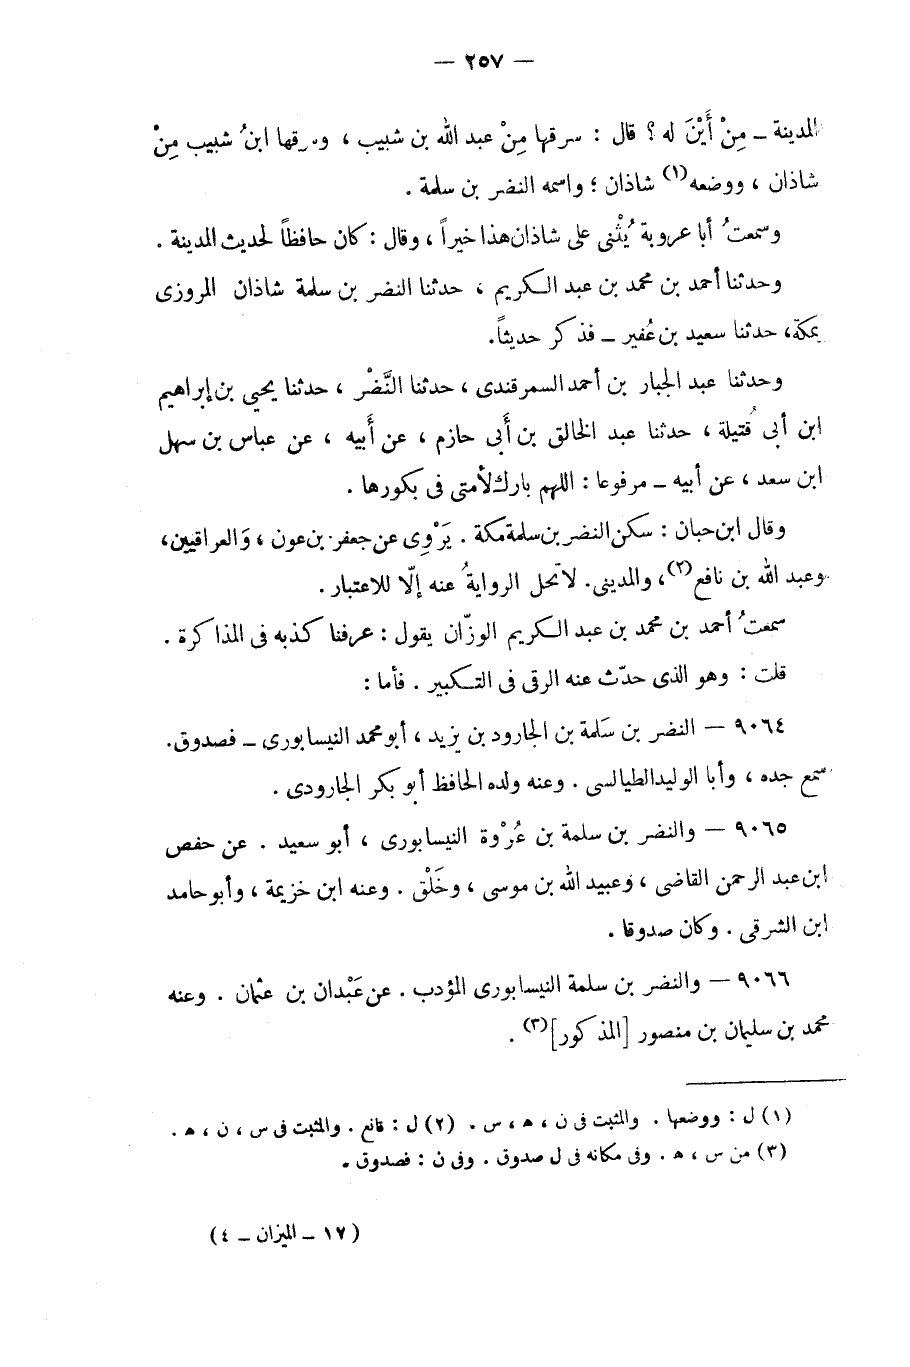 — ٢٥٧ —
المدينة ــ مِنْ أَيْنَ له ؟ قال : سرقها مِنْ عبد الله بن شبيب ، وسرقها ابنُ شبيب مِنْ
شاذان ، ووضعه(١) شاذان ؛ واسمه النضر بن سلمة .
وسمعتُ أبا عروبة يُثْنِى على شاذان هذا خيراً ، وقال : كان حافظاً لحديث المدينة .
وحدثنا أحمد بن محمد بن عبد الكريم ، حدثنا النضر بن سلمة شاذان المروزى
بمكة، حدثنا سعيد بن عُفير ــ فذكر حديثاً.
وحدثنا عبد الجبار بن أحمد السمرقندى ، حدثنا النَّضْر ، حدثنا يحيى بن إبراهيم
ابن أبى قُتيلة ، حدثنا عبد الخالق بن أَبى حازم ، عن أَبيه ، عن عباس بن سهل
ابن سعد ، عن أبيه ــ مرفوعا : اللهم بارك لأمتى فى بكورها .
وقال ابن حبان : سكن النضر بن سلمة مكة . يَرْوِى عن جعفر بن عون ، وَالعراقيين،
وعبد الله بن نافع(٢)، والمدينى. لا تحل الروايةُ عنه إلّا للاعتبار .
سمعتُ أحمد بن محمد بن عبد الكريم الوزّان يقول : عرفنا كذبه فى المذاكرة .
قلت : وهو الذى حدّث عنه الرقى فى التكبير . فأما :
٩٠٦٤ — النضر بن سَلمة بن الجارود بن يزيد ، أبو محمد النيسابورى ــ فصدوق.
سمع جده ، وأبا الوليد الطيالسى . وعنه ولده الحافظ أبو بكر الجارودى .
٩٠٦٥ — والنضر بن سلمة بن عُرْوة النيسابورى ، أبو سعيد . عن حفص
ابن عبد الرحمن القاضى ، وَعبيد الله بن موسى ، وخَلْق . وعنه ابن خزيمة ، وأبو حامد
ابن الشرقى . وكان صدوقا .
٩٠٦٦ — والنضر بن سلمة النيسابورى المؤدب . عن عَبْدان بن عثمان . وعنه
محمد بن سليمان بن منصور [المذكور](٣) .
(١) ل : ووضعها . والمثبت فى ن ، ه ، س . (٢) ل : قانع . والمثبت فى س ، ن ، ه .
(٣) من س ، ه . وفى مكانه فى ل صدوق . وفى ن : فصدوق .
(١٧ ــ الميزان ــ ٤)